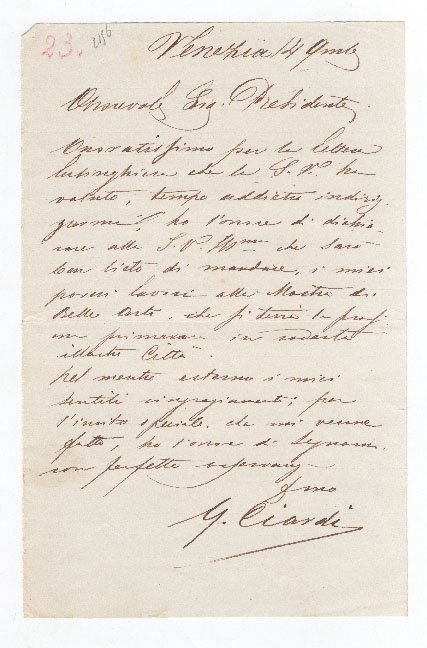 23. 2186
Venezia 14 9mbe
Onorevole Sig. Presidente,
Onoratissimo per la lettera
lusinghiera che la S. V. ha
voluto, tempo addietro indiriz
zarmi, ho l'onore di dichia
rare alla S. V. Illma che sarò
ben lieto di mandare, i miei
poveri lavori alla Mostra di
Belle Arti, che si terrà la pross
ima primavera in codesta
illustre Città.
Nel mentre esterno i miei
sentiti ringraziamenti, per
l'invito speciale, che mi venne
fatto, ho l'onore di segnarmi
con perfetta osservanza
G. Ciardi